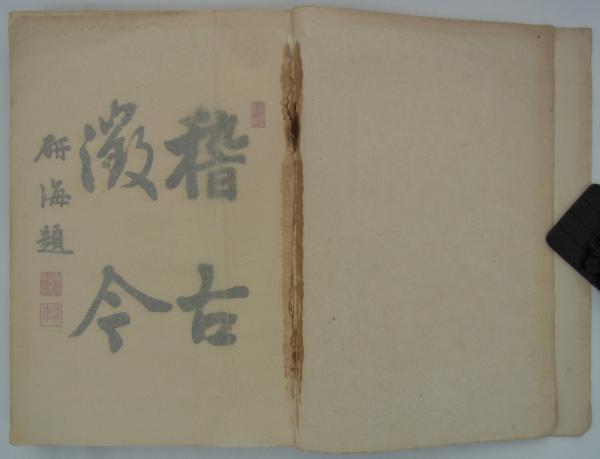 稽古
徵今
研海題